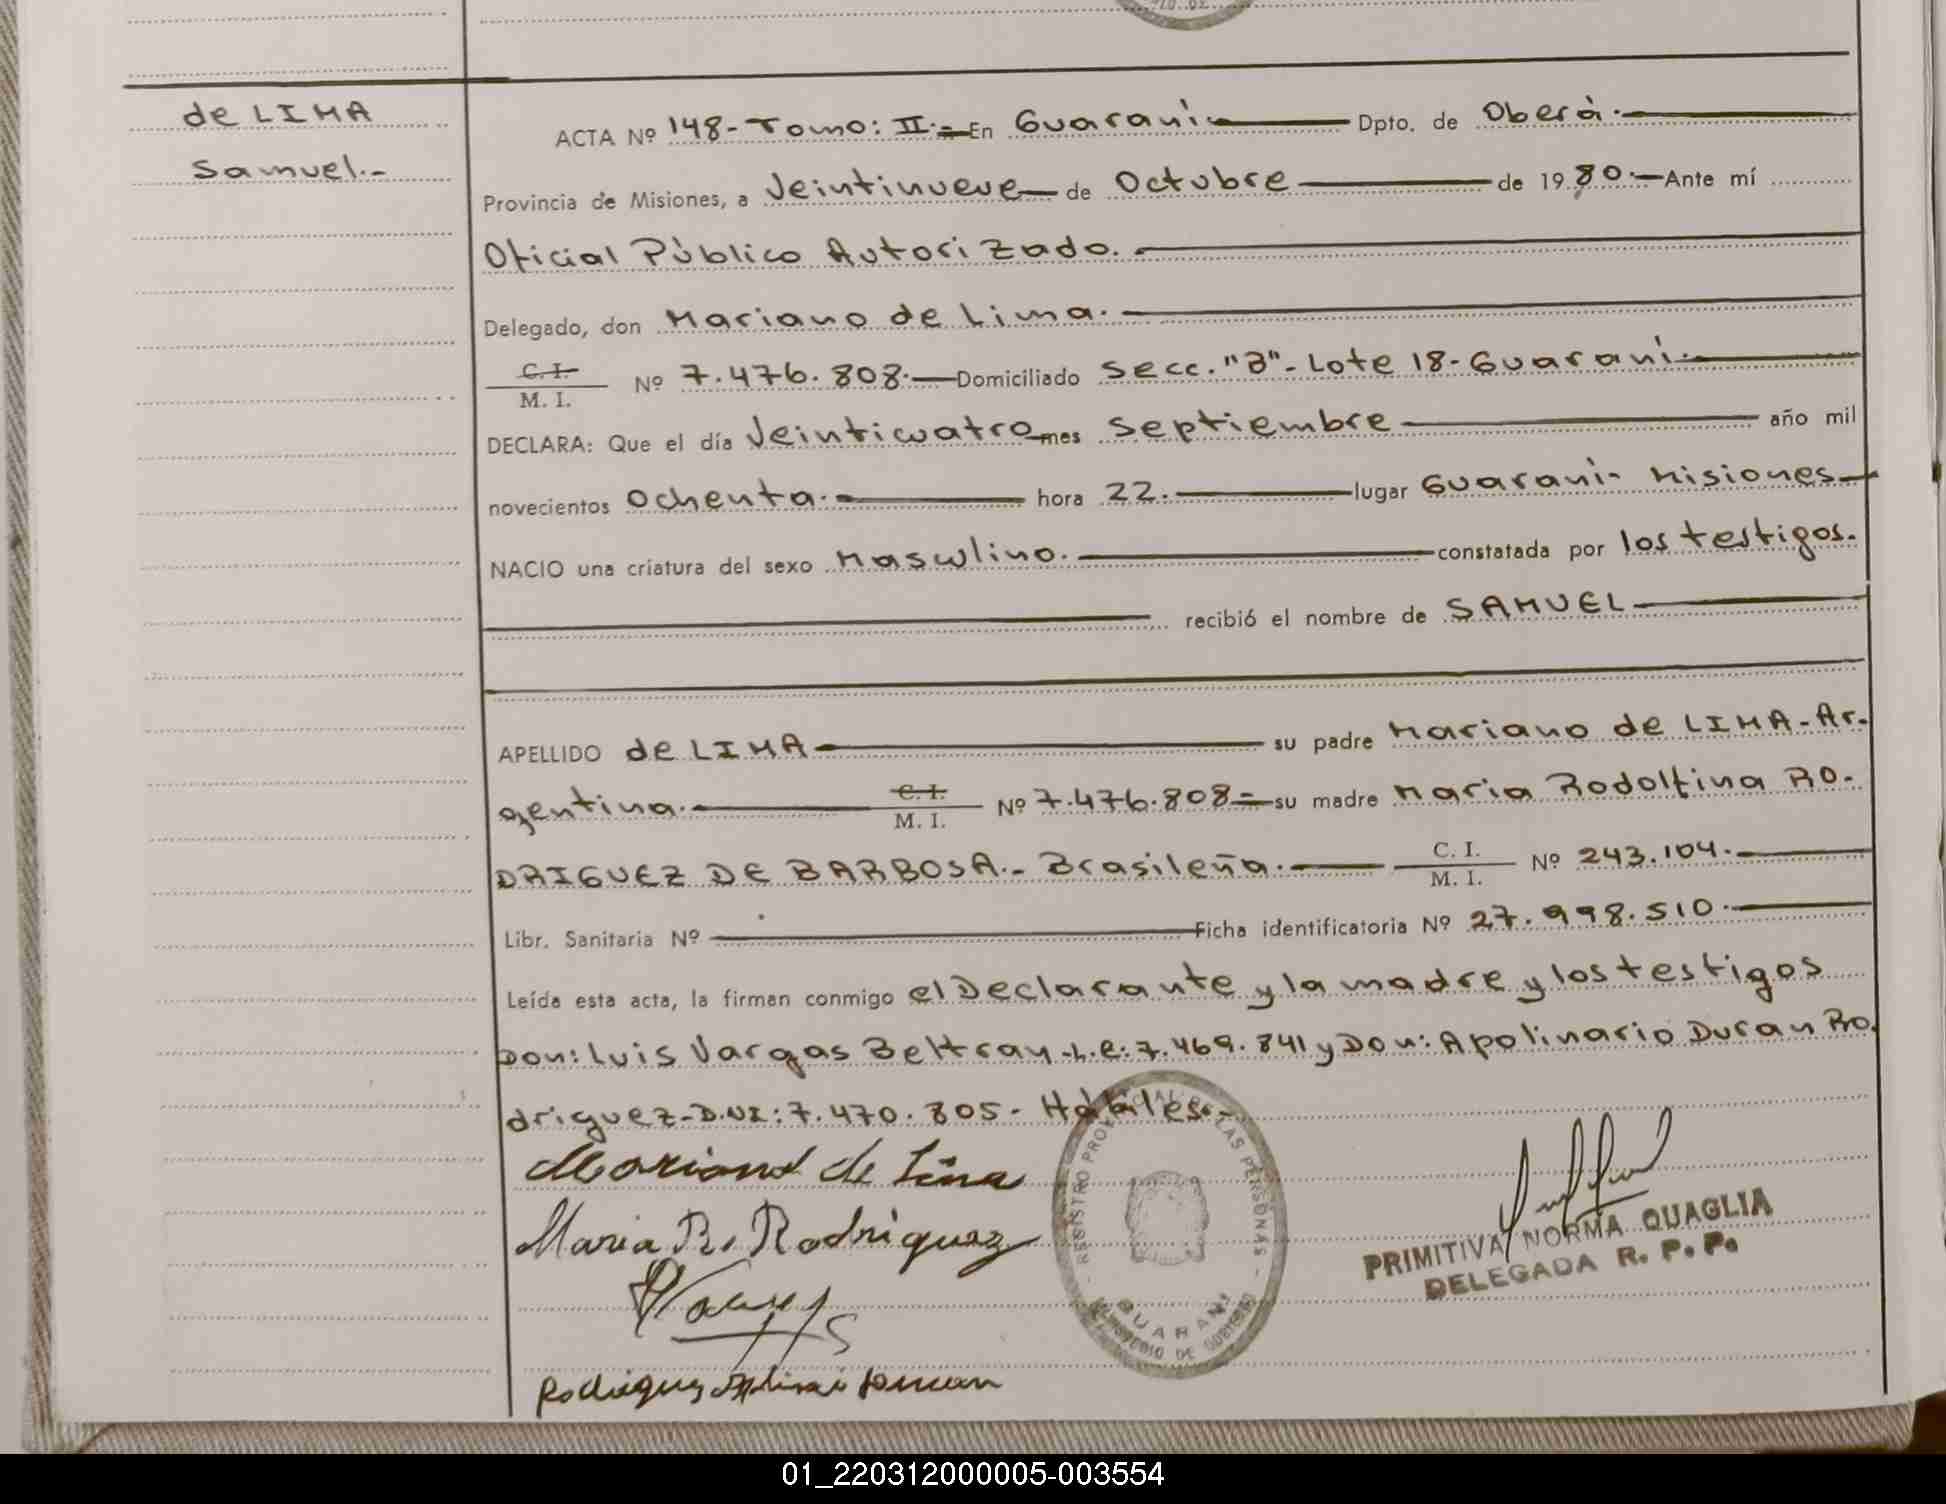 de LIMA
Samuel.-
ACTA Nº 148- Tomo: II.- En Guaraní. Dpto. de Oberá.
Provincia de Misiones, a Veintinueve de Octubre de 1980.- Ante mí
Oficial Público Autorizado.
Delegado, don Mariano de Lima.
C. I.
M. I. Nº 7.476.808.- Domiciliado Secc. "B"- Lote 18- Guaraní.
DECLARA: Que el día Veinticuatro mes Septiembre año mil
novecientos Ochenta. hora 22. lugar Guaraní- Misiones
NACIO una criatura del sexo Masculino. constatada por los testigos.
recibió el nombre de SAMUEL
APELLIDO de LIMA su padre Mariano de LIMA- Ar-
gentina. C. I. M. I. Nº 7.476.808= su madre Maria Rodolfina RO-
DRIGUEZ DE BARBOSA.- Brasileña. C. I. M. I. Nº 243.104.
Libr. Sanitaria Nº Ficha identificatoria Nº 27.998.510.
Leída esta acta, la firman conmigo el Declarante y la madre y los testigos
Don: Luis Vargas Beltran -L.E: 7.469.841 y Don: Apolinario Duran Ro-
driguez- D.NI: 7.470.805- Hábiles.-
Mariano de Lima
Maria R. Rodriguez
REGISTRO PROVINCIAL DE LAS PERSONAS
GUARANI
MINISTERIO DE GOBIERNO
PRIMITIVA NORMA QUAGLIA
DELEGADA R. P. P.
Rodriguez
01_220312000005-003554